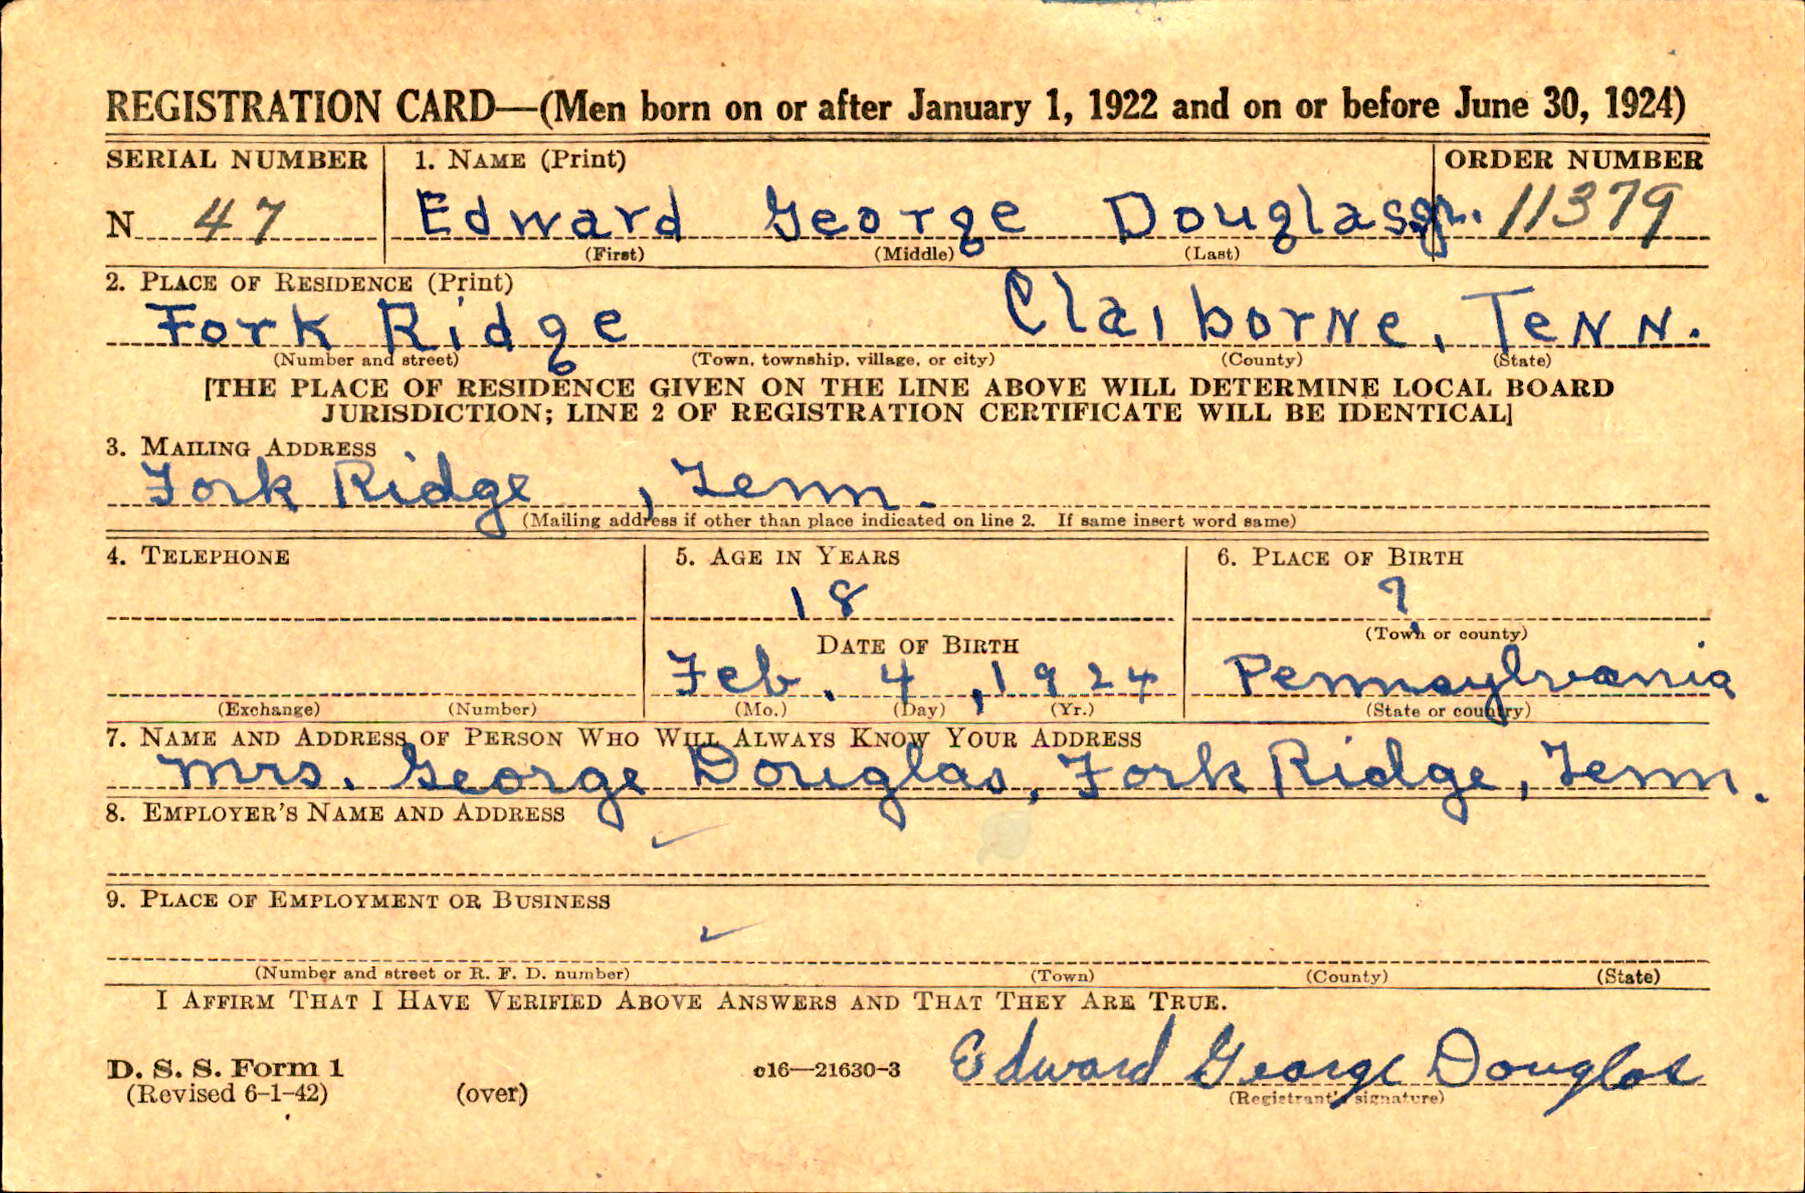 REGISTRATION CARD—(Men born on or after January 1, 1922 and on or before June 30, 1924)
SERIAL NUMBER 1. NAME (Print) ORDER NUMBER
N 47 Edward George Douglas Jr. 11379
(First) (Middle) (Last)
2. PLACE OF RESIDENCE (Print)
Fork Ridge Claiborne, Tenn.
(Number and street) (Town, township, village, or city) (County) (State)
[THE PLACE OF RESIDENCE GIVEN ON THE LINE ABOVE WILL DETERMINE LOCAL BOARD
JURISDICTION; LINE 2 OF REGISTRATION CERTIFICATE WILL BE IDENTICAL]
3. MAILING ADDRESS
Fork Ridge, Tenn.
(Mailing address if other than place indicated on line 2. If same insert word same)
4. TELEPHONE 5. AGE IN YEARS 6. PLACE OF BIRTH
18 ?
DATE OF BIRTH (Town or county)
Feb. 4, 1924 Pennsylvania
(Exchange) (Number) (Mo.) (Day) (Yr.) (State or country)
7. NAME AND ADDRESS OF PERSON WHO WILL ALWAYS KNOW YOUR ADDRESS
Mrs. George Douglas, Fork Ridge, Tenn.
8. EMPLOYER'S NAME AND ADDRESS
9. PLACE OF EMPLOYMENT OR BUSINESS
(Number and street or R. F. D. number) (Town) (County) (State)
I AFFIRM THAT I HAVE VERIFIED ABOVE ANSWERS AND THAT THEY ARE TRUE.
D. S. S. Form 1 c16—21630-3 Edward George Douglas
(Revised 6-1-42) (over) (Registrant's signature)